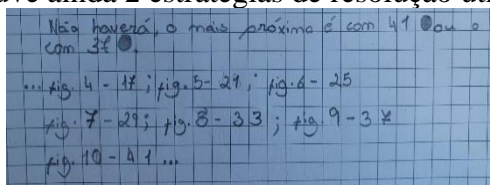 uve ainda 2 estratégias de resolução uti
Não haverá, o mais próximo é com 41 ou o
com 37.
... fig. 4 - 17; fig. 5 - 21; fig. 6 - 25
fig. 7 - 29; fig. 8 - 33; fig. 9 - 37
fig. 10 - 41 ...